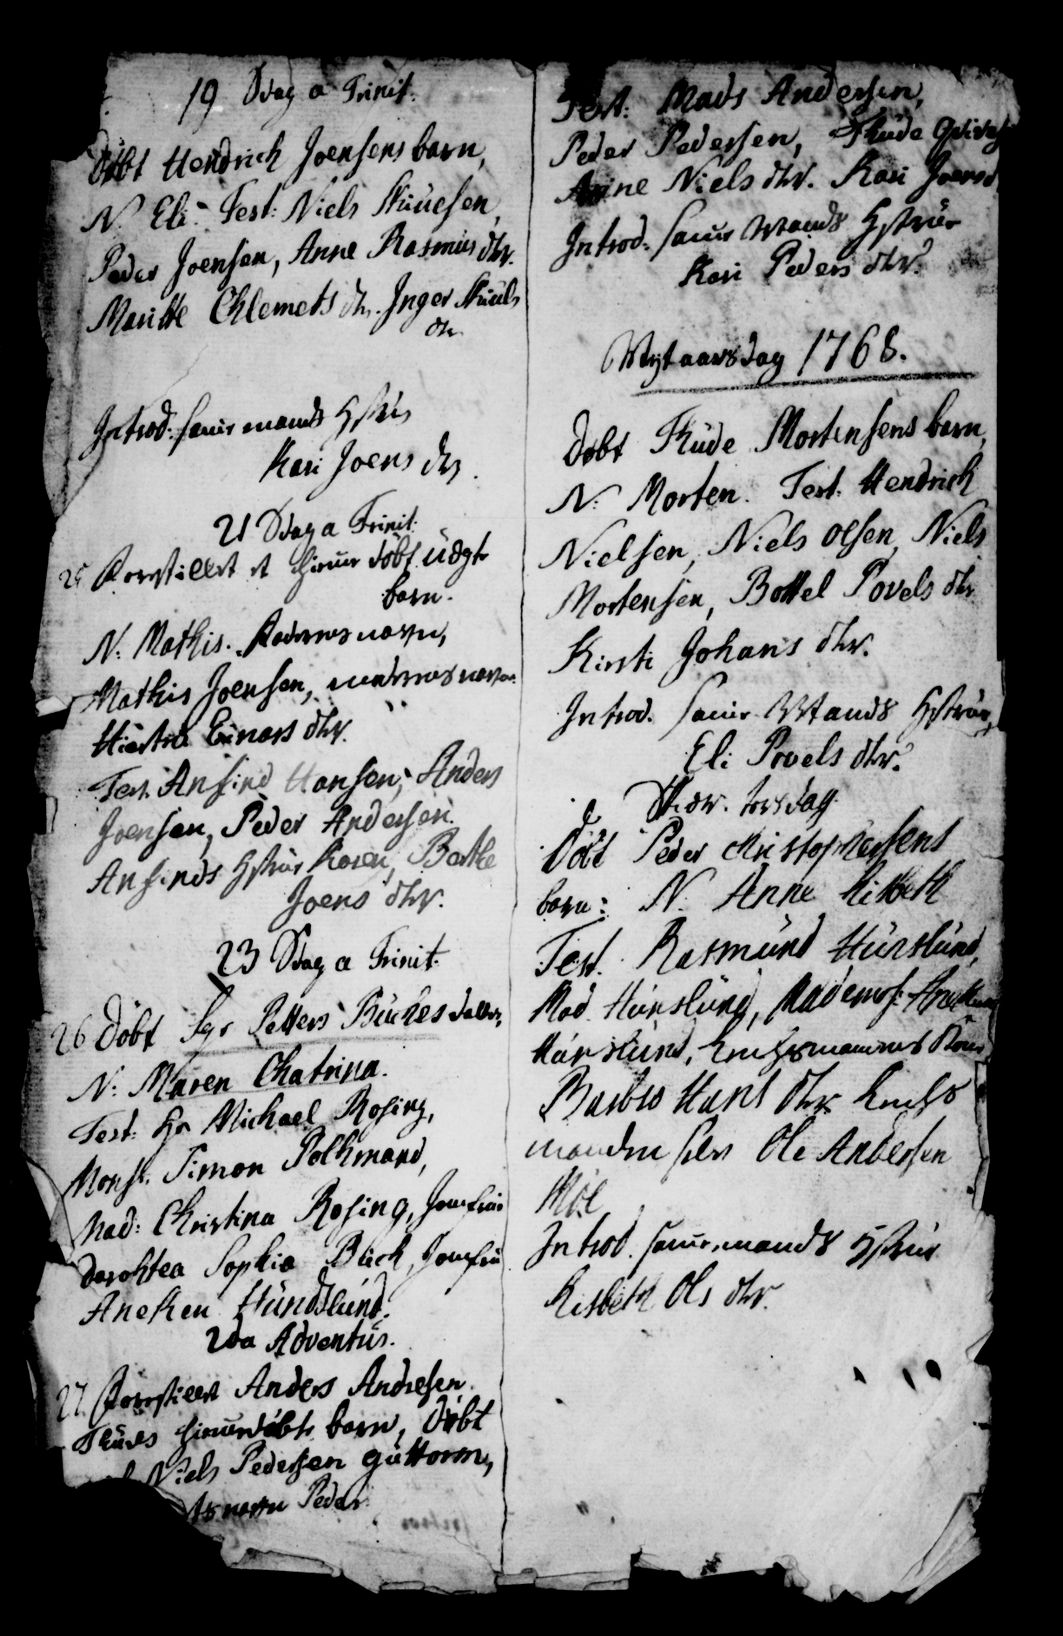 19 Sdag a Trinit.
Döbt Hendrich Joensens barn,
N. Eli. Test: Niels
Peder Joensen, Anne Rasmus dtr.
Maritte Chlemets dtr. Inger
dtr
Introd. samme mands Hustrue
Kari Joens dtr.
21 Sdag a Trinit.
25 Fremstillet et hiemmedöbt uægte
barn.
N: Mathis. Faderens navn,
Mathis Joensen, moderens navn
Einars dtr.
Test. Ansind Hansen, Anders
Joensen, Peder Andersen.
Ansinds Hustrue Karen, Berthe
Joens dtr.
23 Sdag a Trinit.
26 Döbt Sgr Petters Buckes datter,
N: Maren Chatrina.
Test: Hr Michael Rosing,
Mons. Simon Polkmand,
Mad: Christina Rosing, Jomfrue
Dorohtea Sophia Buck, Jomfru
Aneken Hundslund.
2da Adventus.
27. Fremstillet Anders Andresen
hiemmedöbte barn, Döbt
Niels Pedersen Guttorm,
navn Peder
Test: Mads Andersen,
Peder Pedersen,
Anne Niels dtr. Kari
Introd: samme Mands Hustrue
Kari Peders dtr.
Nytaarsdag 1768.
Döbt Mortensens barn,
N: Morten. Test. Hendrich
Nielsen, Niels Olsen, Niels
Mortensen, Bottel Povels dtr
Kirsti Johans dtr.
Introd. samme Mands Hustrue,
Eli Povels dtr.
Skær torsdag.
Döbt Peder Christophersens
barn: N. Anne Lisbeth
Test. Rasmund Hundslund,
Mad. Hundslund, Mademos.
Hundslund,
Barbro Hans dtr
manden Ole Andersen
Moe
Introd. samme mands Hustrue
Lisbeth Ols dtr.